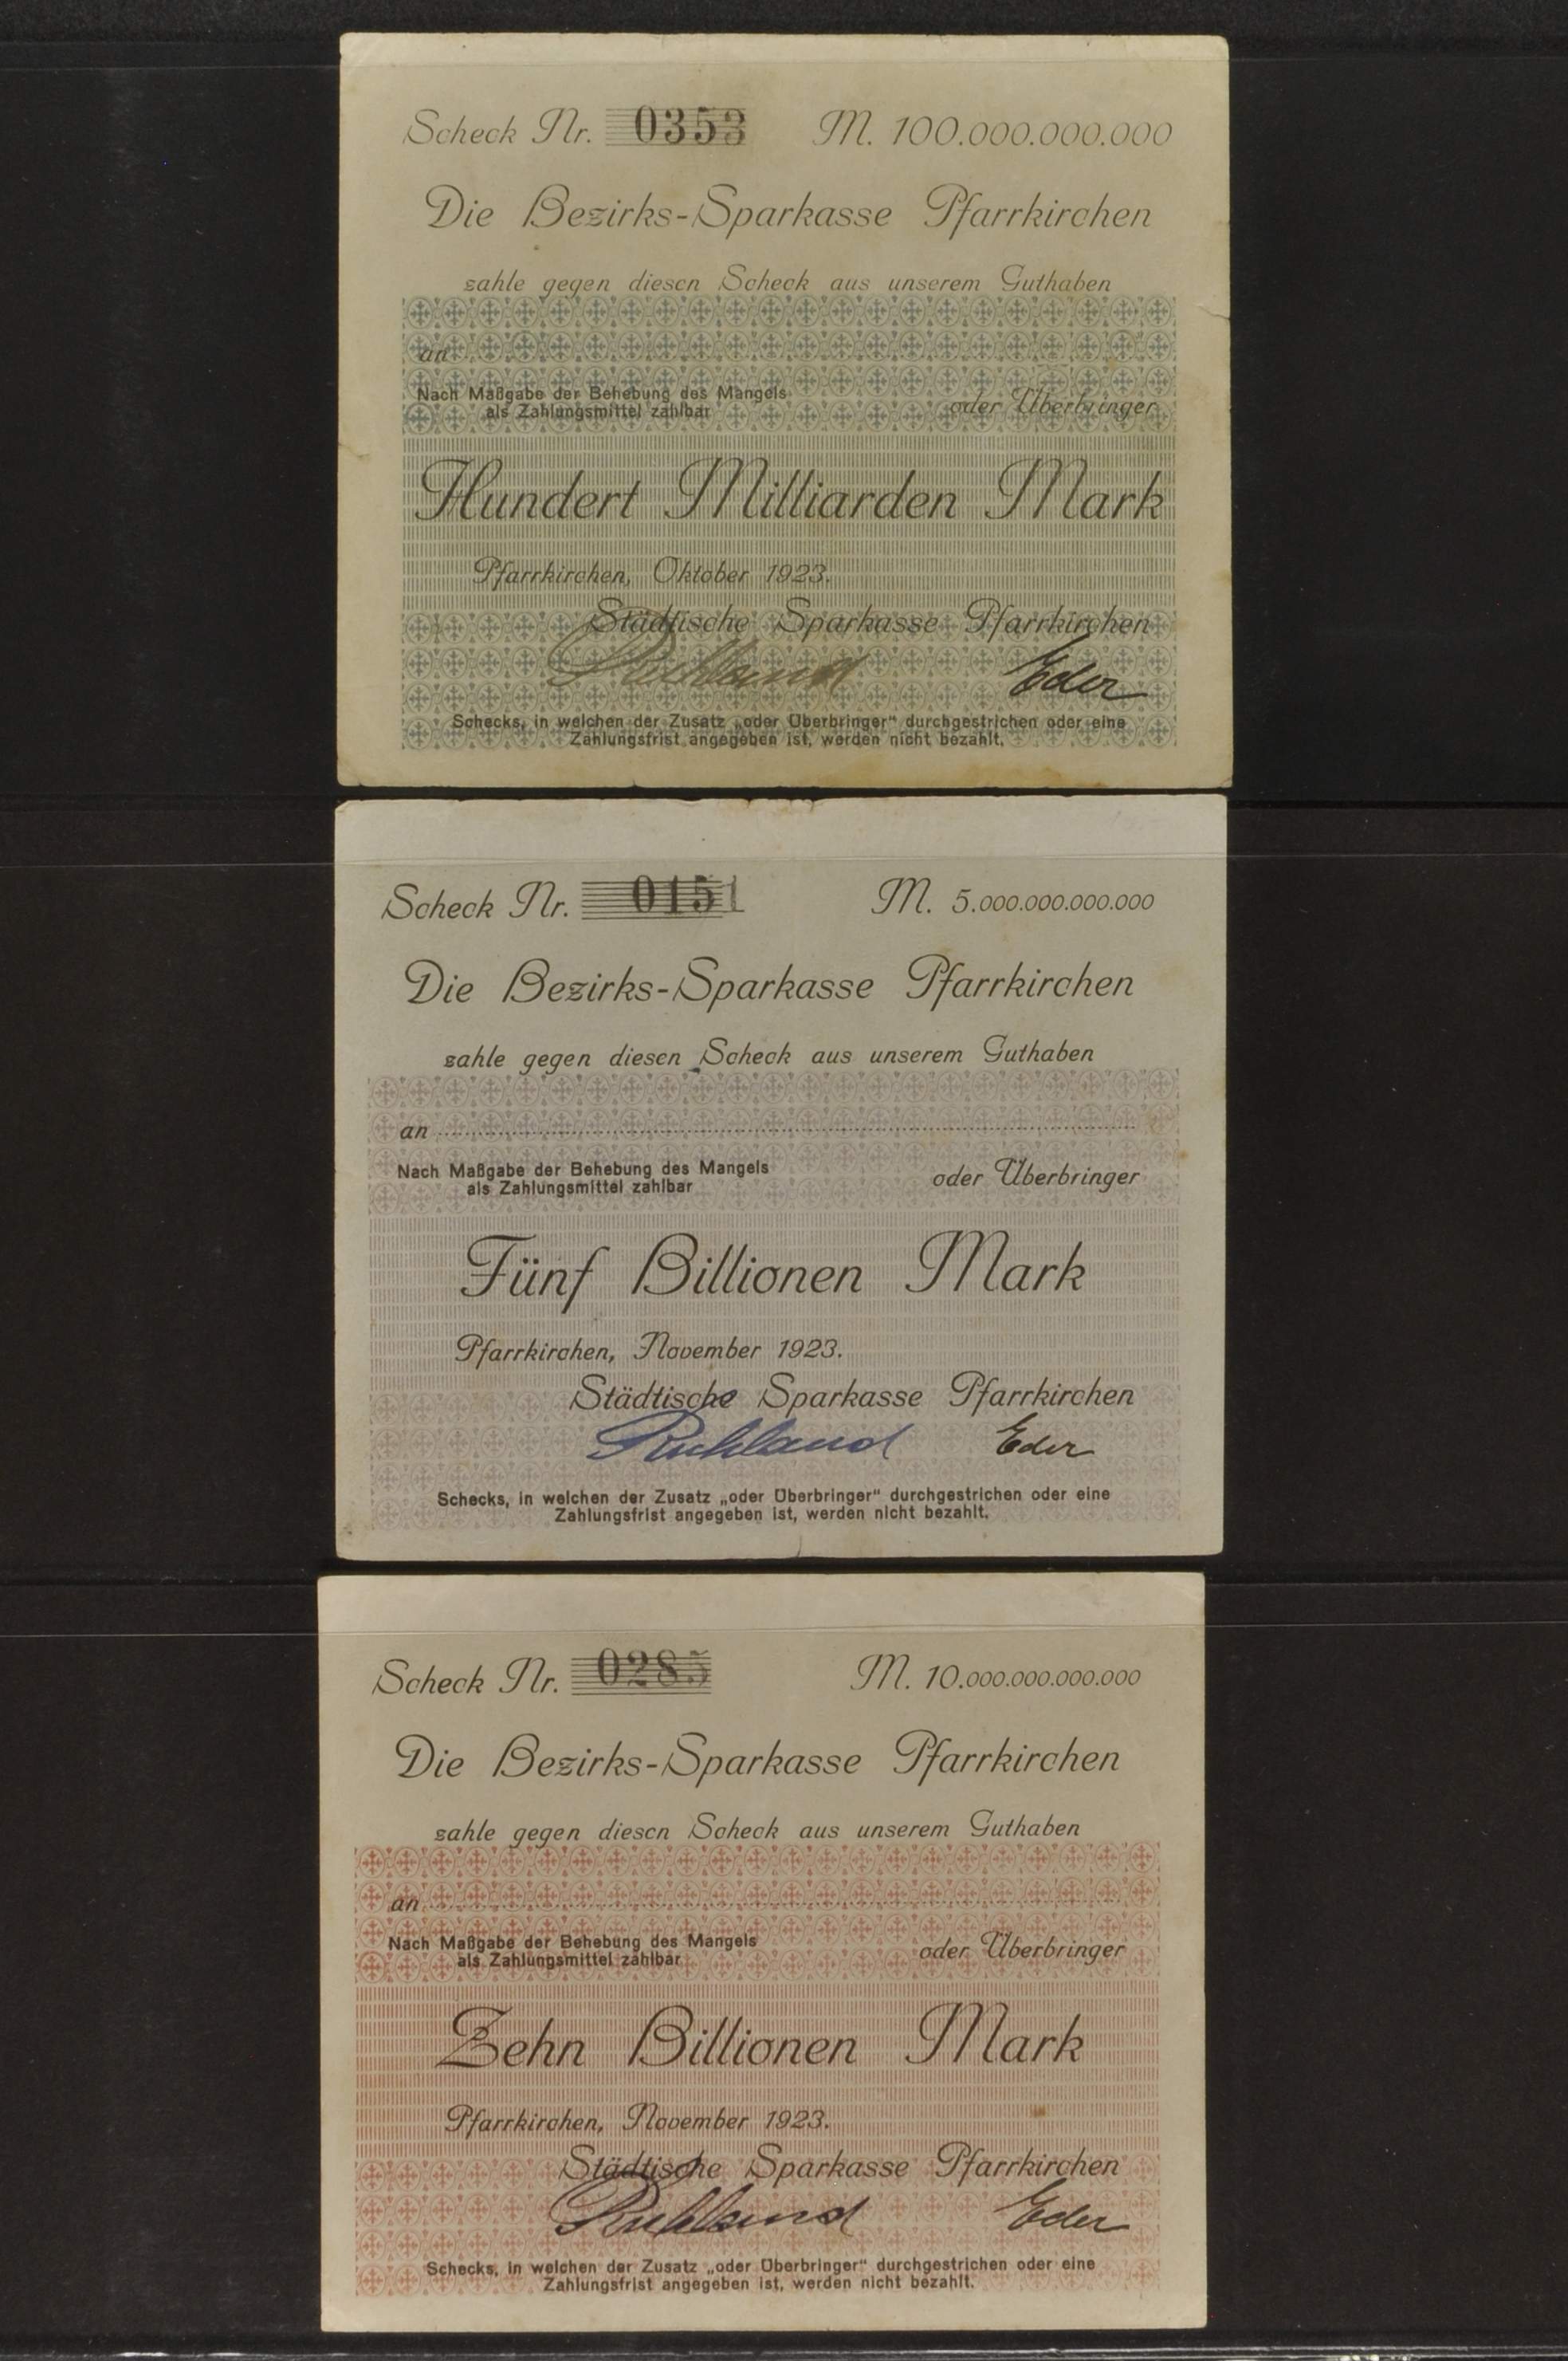 Scheck Nr. 0353 M. 100.000.000.000
Die Bezirks-Sparkasse Pfarrkirchen
zahle gegen diesen Scheck aus unserem Guthaben
an
Nach Maßgabe der Behebung des Mangels
als Zahlungsmittel zahlbar
oder Überbringer
Hundert Milliarden Mark
Pfarrkirchen, Oktober 1923.
Städtische Sparkasse Pfarrkirchen
Ruhland Eder
Schecks, in welchen der Zusatz „oder Überbringer“ durchgestrichen oder eine
Zahlungsfrist angegeben ist, werden nicht bezahlt.
Scheck Nr. 0151 M. 5.000.000.000.000
Die Bezirks-Sparkasse Pfarrkirchen
zahle gegen diesen Scheck aus unserem Guthaben
an
Nach Maßgabe der Behebung des Mangels
als Zahlungsmittel zahlbar
oder Überbringer
Fünf Billionen Mark
Pfarrkirchen, November 1923.
Städtische Sparkasse Pfarrkirchen
Ruhland Eder
Schecks, in welchen der Zusatz „oder Überbringer“ durchgestrichen oder eine
Zahlungsfrist angegeben ist, werden nicht bezahlt.
Scheck Nr. 0285 M. 10.000.000.000.000
Die Bezirks-Sparkasse Pfarrkirchen
zahle gegen diesen Scheck aus unserem Guthaben
an
Nach Maßgabe der Behebung des Mangels
als Zahlungsmittel zahlbar
oder Überbringer
Zehn Billionen Mark
Pfarrkirchen, November 1923.
Städtische Sparkasse Pfarrkirchen
Ruhland Eder
Schecks, in welchen der Zusatz „oder Überbringer“ durchgestrichen oder eine
Zahlungsfrist angegeben ist, werden nicht bezahlt.